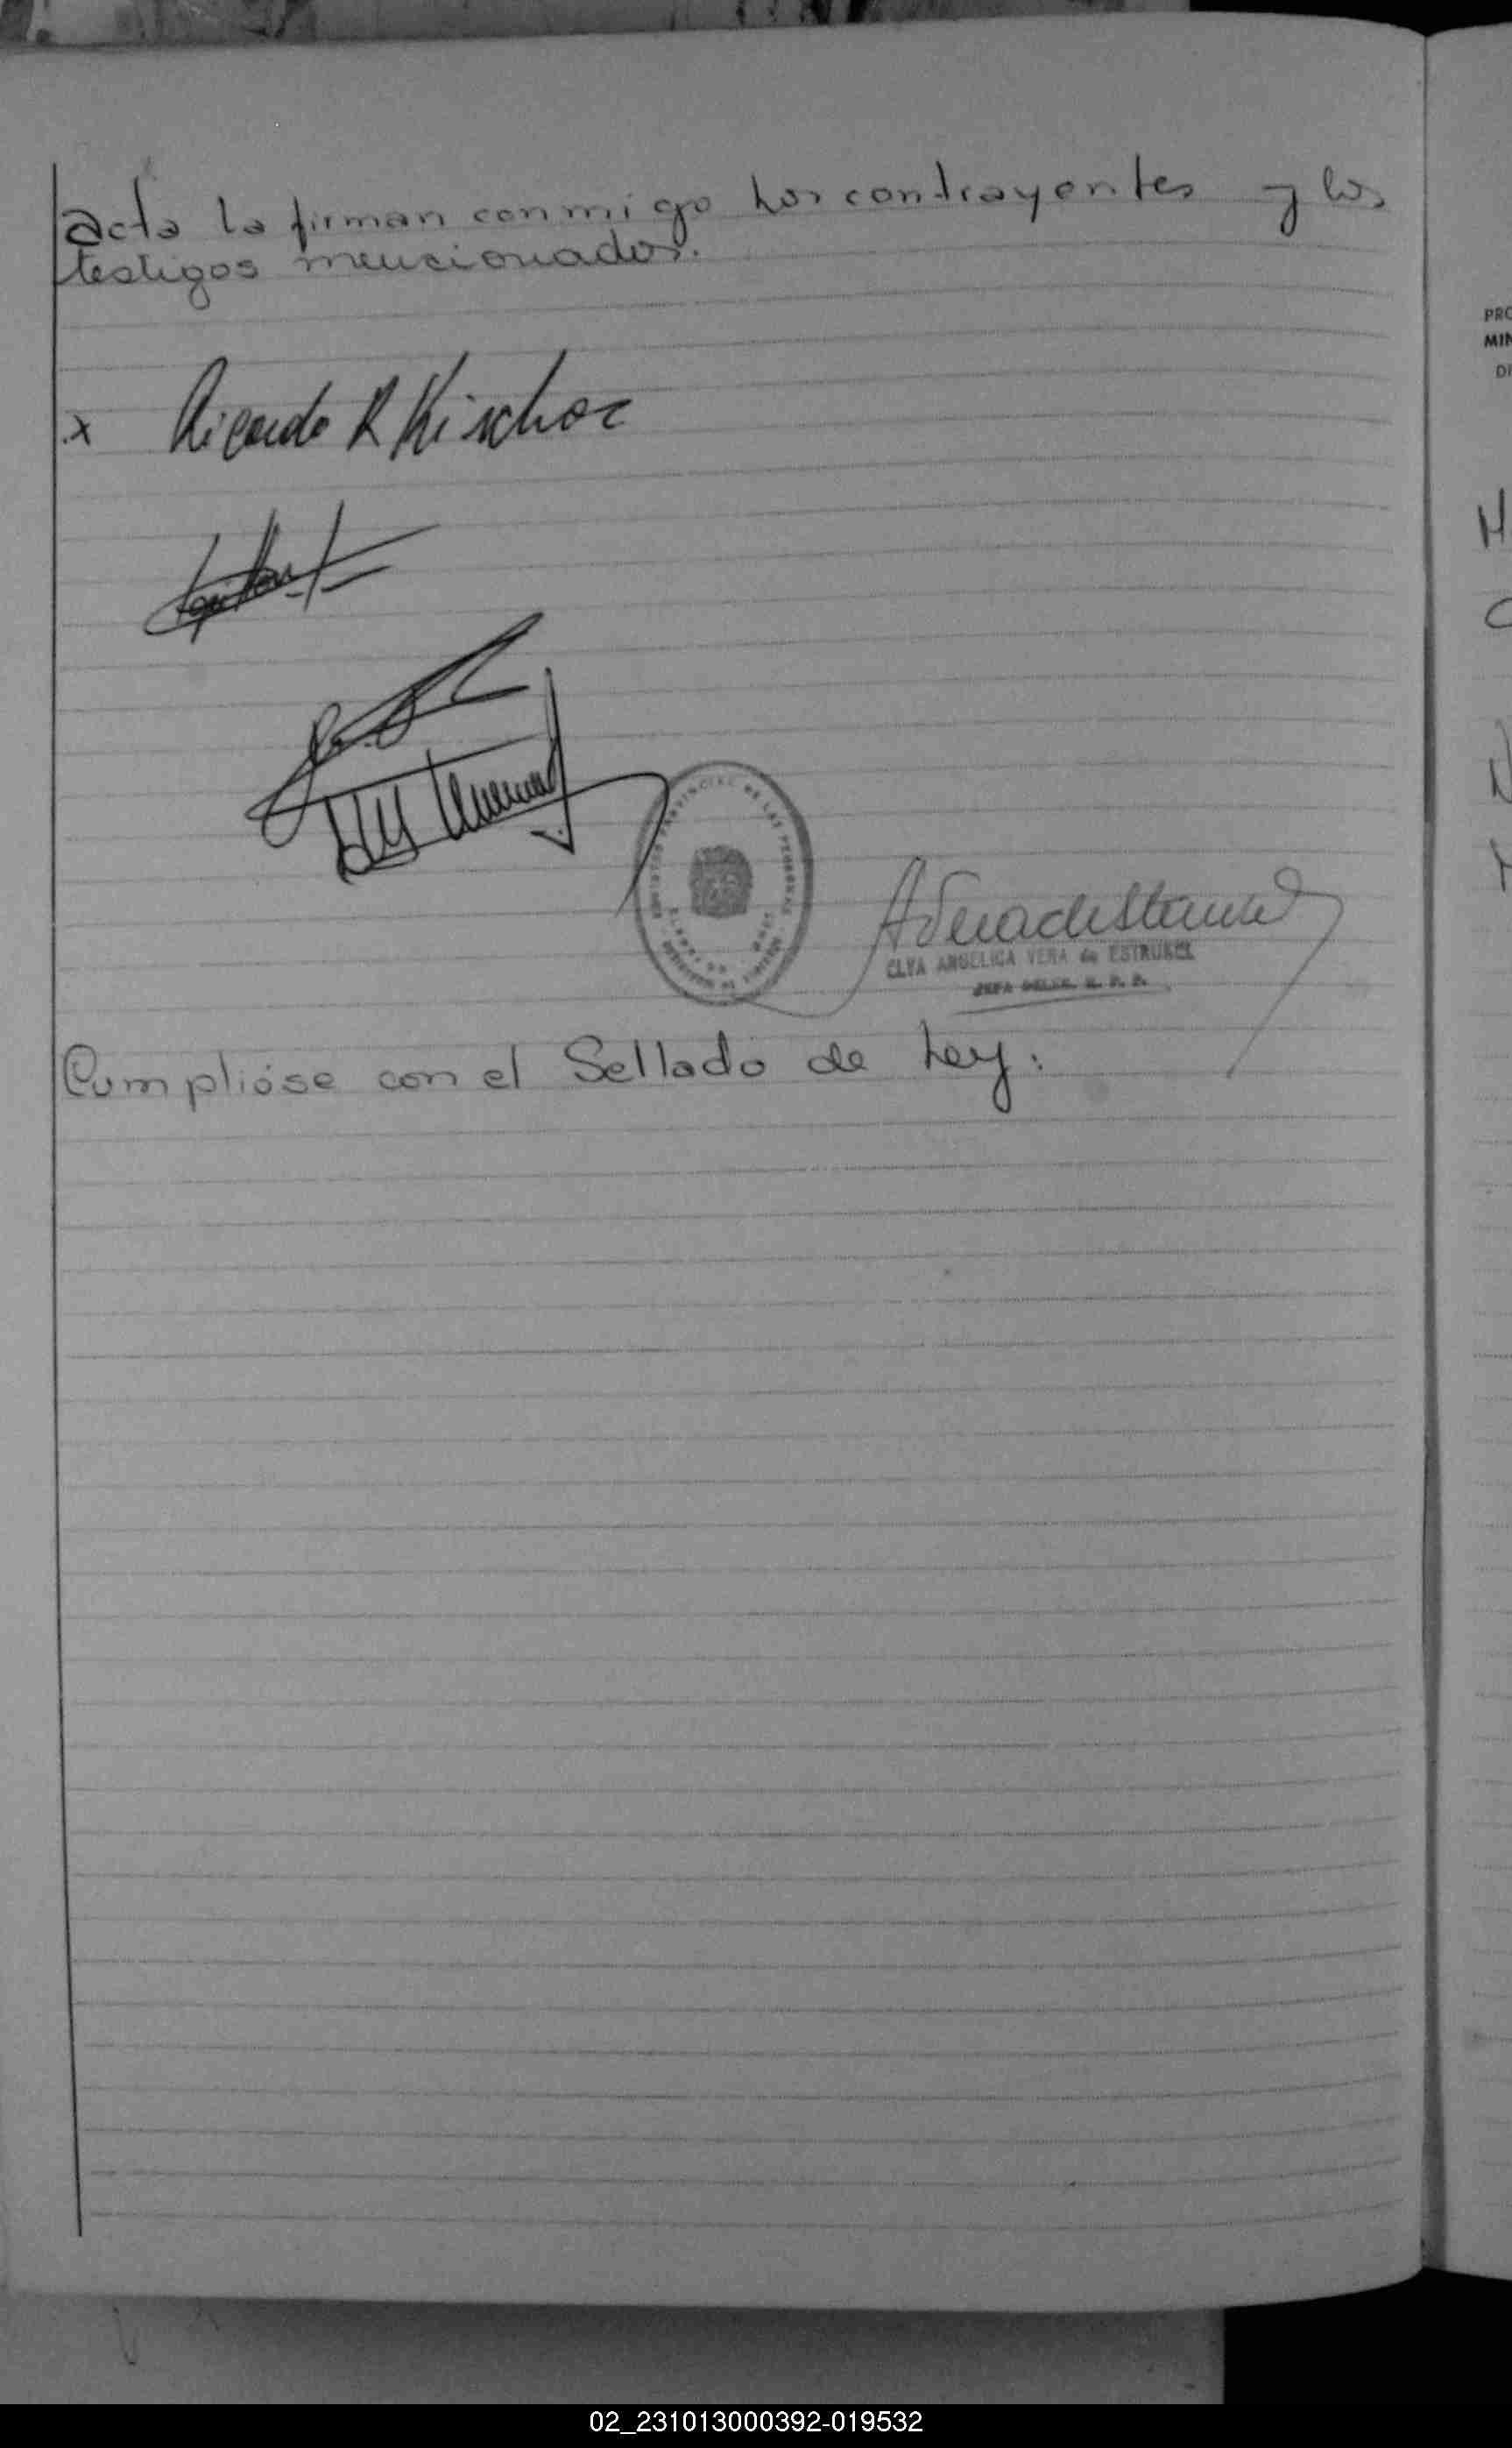 acta la firman conmigo los contrayentes y los
testigos mencionados.
x Ricardo R Kischoc
REGISTRO PROVINCIAL DE LAS PERSONAS
CLYA ANGELICA VERA de ESTRUKEL
JEFA DELEG. R. P. P.
Cumplióse con el Sellado de Ley:
PRO
MIN
DI
02_231013000392-019532